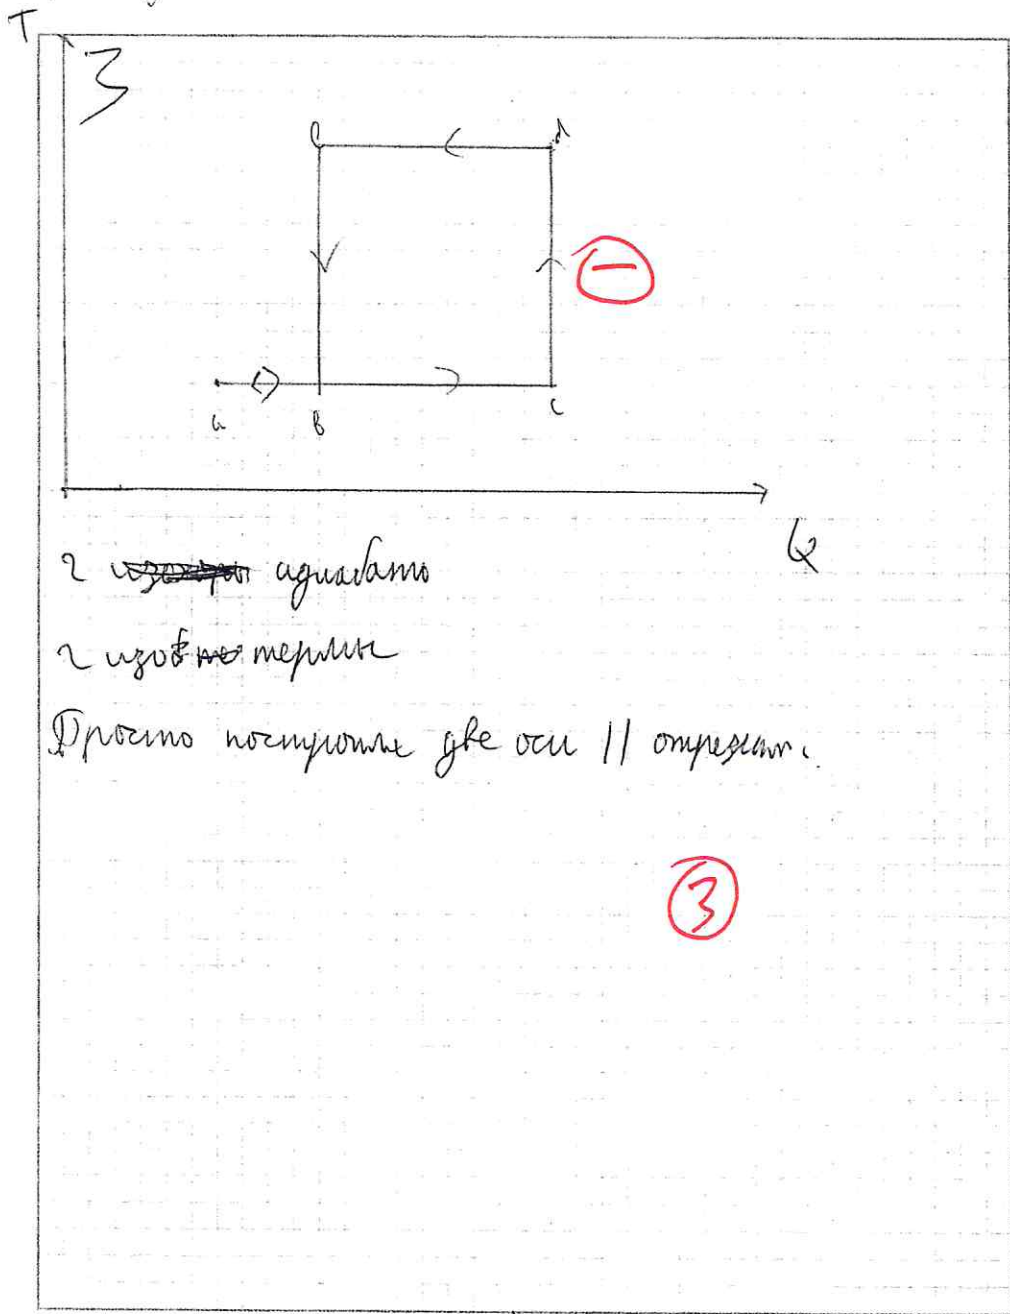 T
3
l d
−
a B c
Q
2 адиабаты
2 изотермы
Просто построим две оси || отрезкам.
3